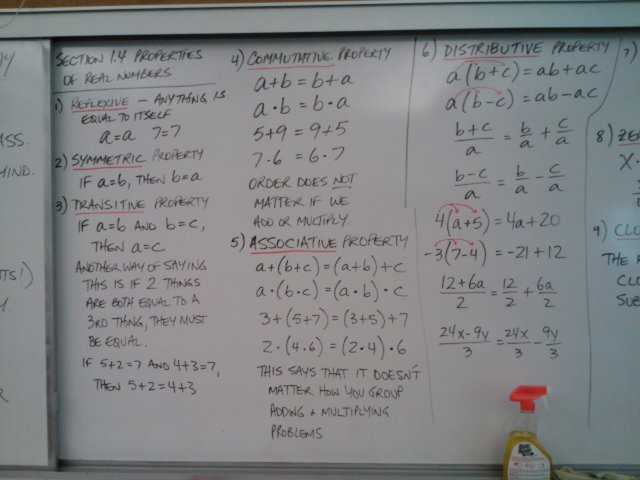 SECTION 1.4 PROPERTIES
OF REAL NUMBERS
1) REFLEXIVE — ANYTHING IS
EQUAL TO ITSELF
a=a 7=7
2) SYMMETRIC PROPERTY
IF a=b, THEN b=a
3) TRANSITIVE PROPERTY
IF a=b AND b=c,
THEN a=c
ANOTHER WAY OF SAYING
THIS IS IF 2 THINGS
ARE BOTH EQUAL TO A
3RD THING, THEY MUST
BE EQUAL.
IF 5+2=7 AND 4+3=7,
THEN 5+2=4+3
4) COMMUTATIVE PROPERTY
a+b=b+a
a·b=b·a
5+9=9+5
7·6=6·7
ORDER DOES NOT
MATTER IF WE
ADD OR MULTIPLY.
5) ASSOCIATIVE PROPERTY
a+(b+c)=(a+b)+c
a·(b·c)=(a·b)·c
3+(5+7)=(3+5)+7
2·(4·6)=(2·4)·6
THIS SAYS THAT IT DOESN'T
MATTER HOW YOU GROUP
ADDING + MULTIPLYING
PROBLEMS
6) DISTRIBUTIVE PROPERTY
a(b+c)=ab+ac
a(b-c)=ab-ac
(b+c)/a = b/a + c/a
(b-c)/a = b/a - c/a
4(a+5)=4a+20
-3(7-4)=-21+12
(12+6a)/2 = 12/2 + 6a/2
(24x-9y)/3 = 24x/3 - 9y/3
7)
8) ZE
X·
9) CLO
THE R
CLO
SUB
ASS.
MIND.
TS!)